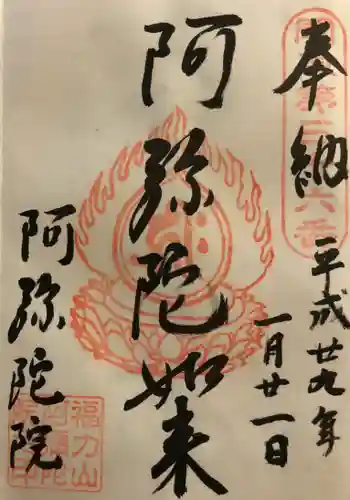 奉納
平成廿九年
一月廿一日
阿弥陀如来
阿弥陀院
福力山
阿彌陀